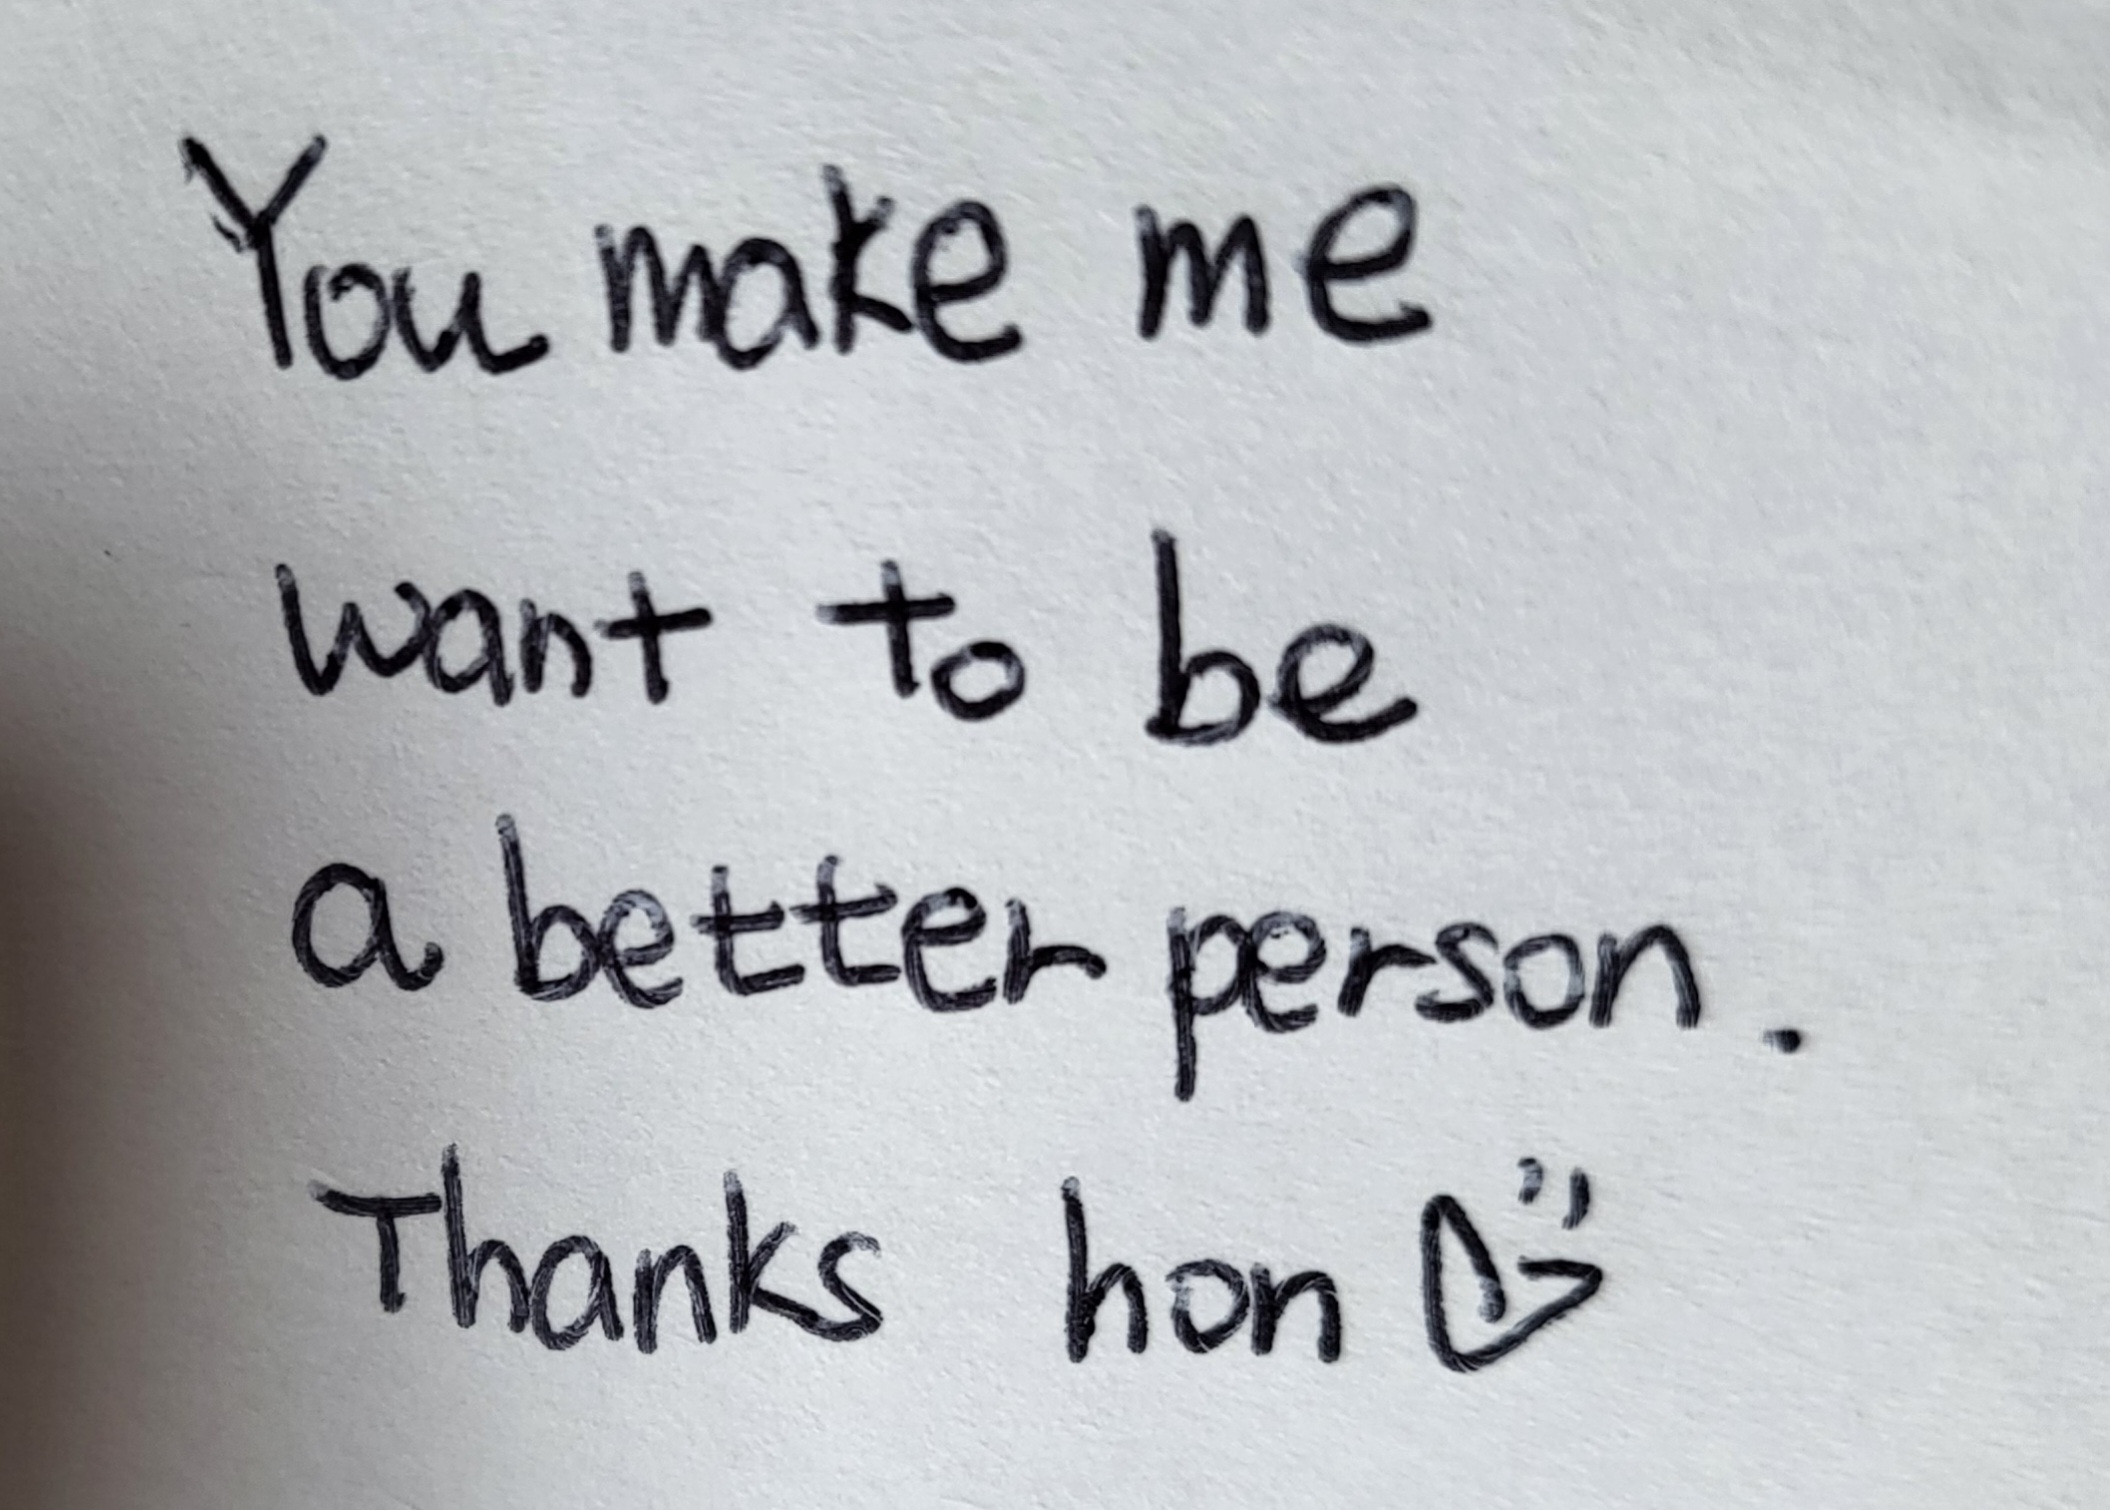 You make me
want to be
a better person.
Thanks hon